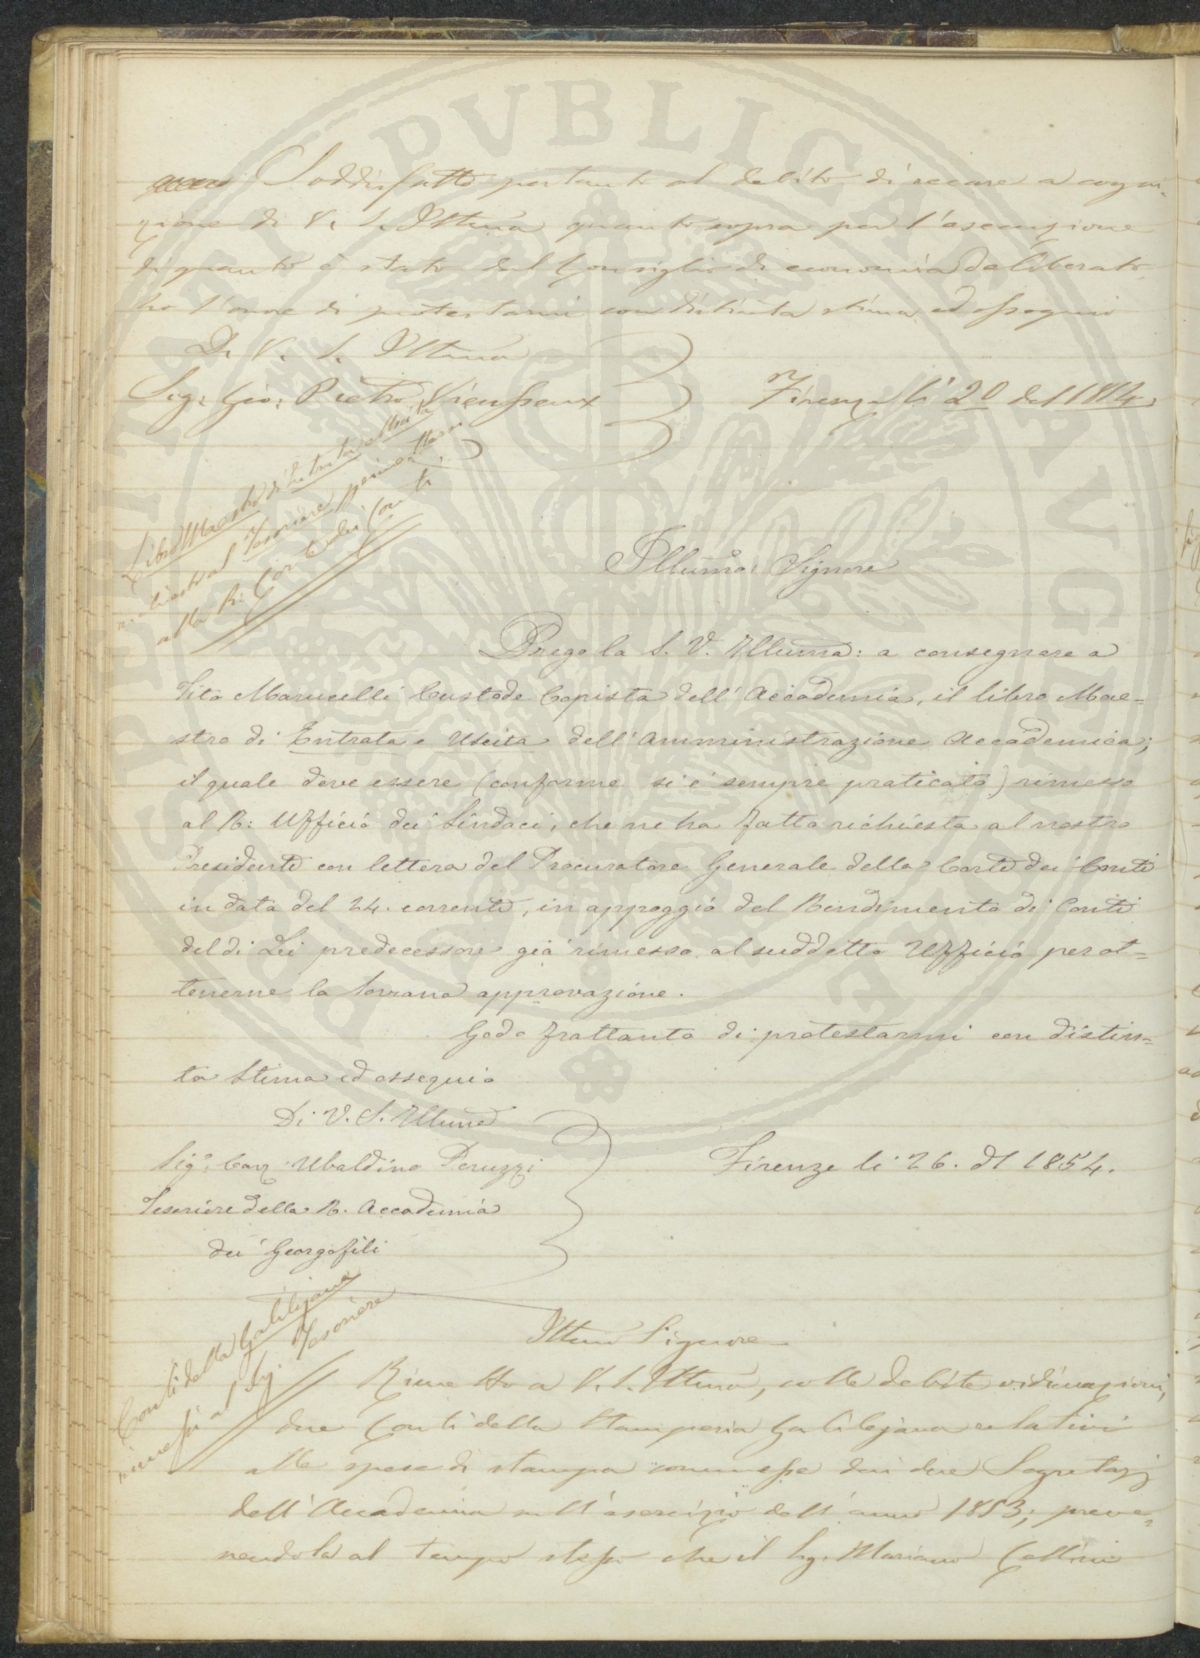 Soddisfatto pertanto al debito di recare a cogni-
zione di V. S. Illma quanto sopra per l'esecuzione
di quanto è stato dal Consiglio di economia deliberato
ho l'onore di protestarmi con distinta stima ed ossequio
Di V. S. Illma
Sig: Gio: Pietro Vieusseux
Firenze li 20 del 1854
Libro Maestro di Entrata e Uscita
richiesto al Tesoriere per
alla R. Corte dei Conti
Illumo: Signore
Prego la S. V. Illuma: a consegnare a
Tito Marucelli Custode Copista dell'Accademia, il libro Mae=
stro di Entrata e Uscita dell'Amministrazione Accademica;
il quale deve essere (conforme si è sempre praticato) rimesso
al R: Ufficio dei Sindaci, che ne ha fatta richiesta al nostro
Presidente con lettera del Procuratore Generale della Corte dei Conti
in data del 24. corrente, in appoggio del Rendimento di Conti
del di Lei predecessore già rimesso al suddetto Ufficio per ot=
tenerne la Sovrana approvazione.
Godo frattanto di protestarmi con distin=
ta Stima ed ossequio
Di V. S. Illuma
Sigr. Cav. Ubaldino Peruzzi
Firenze li 26. dl 1854.
Tesoriere della R. Accademia
dei Georgofili
Conti della Galilejana
rimessi al Sig Tesoriere
Illmo Signore
Rimetto a V. S. Illma, colle debite vidimazioni,
due Conti della Stamperia Galilejana relativi
alle spese di stampa commesse dai due Segretarj
dell'Accademia sull'esercizio dell'anno 1853; preve-
nendola al tempo stesso che il Sig. Mariano Cellini
PVBLICAE AVG